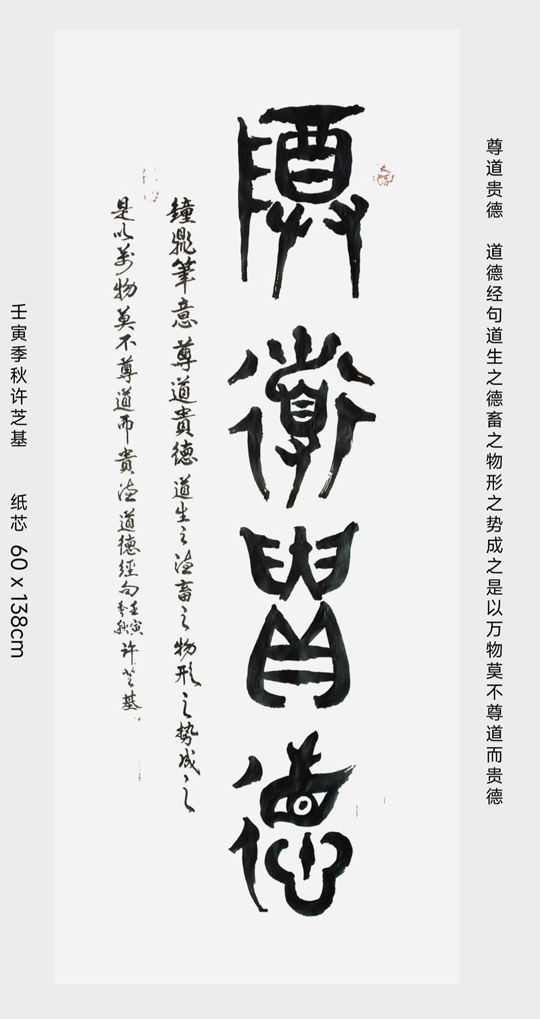 尊道贵德 道德经句道生之德畜之物形之势成之是以万物莫不尊道而贵德
尊
道
貴
德
鐘鼎筆意 尊道貴德 道生之德畜之物形之势成之
是以萬物莫不尊道而貴德 道德經句 壬寅季秋 许芝基
壬寅季秋许芝基 纸芯 60 x 138cm